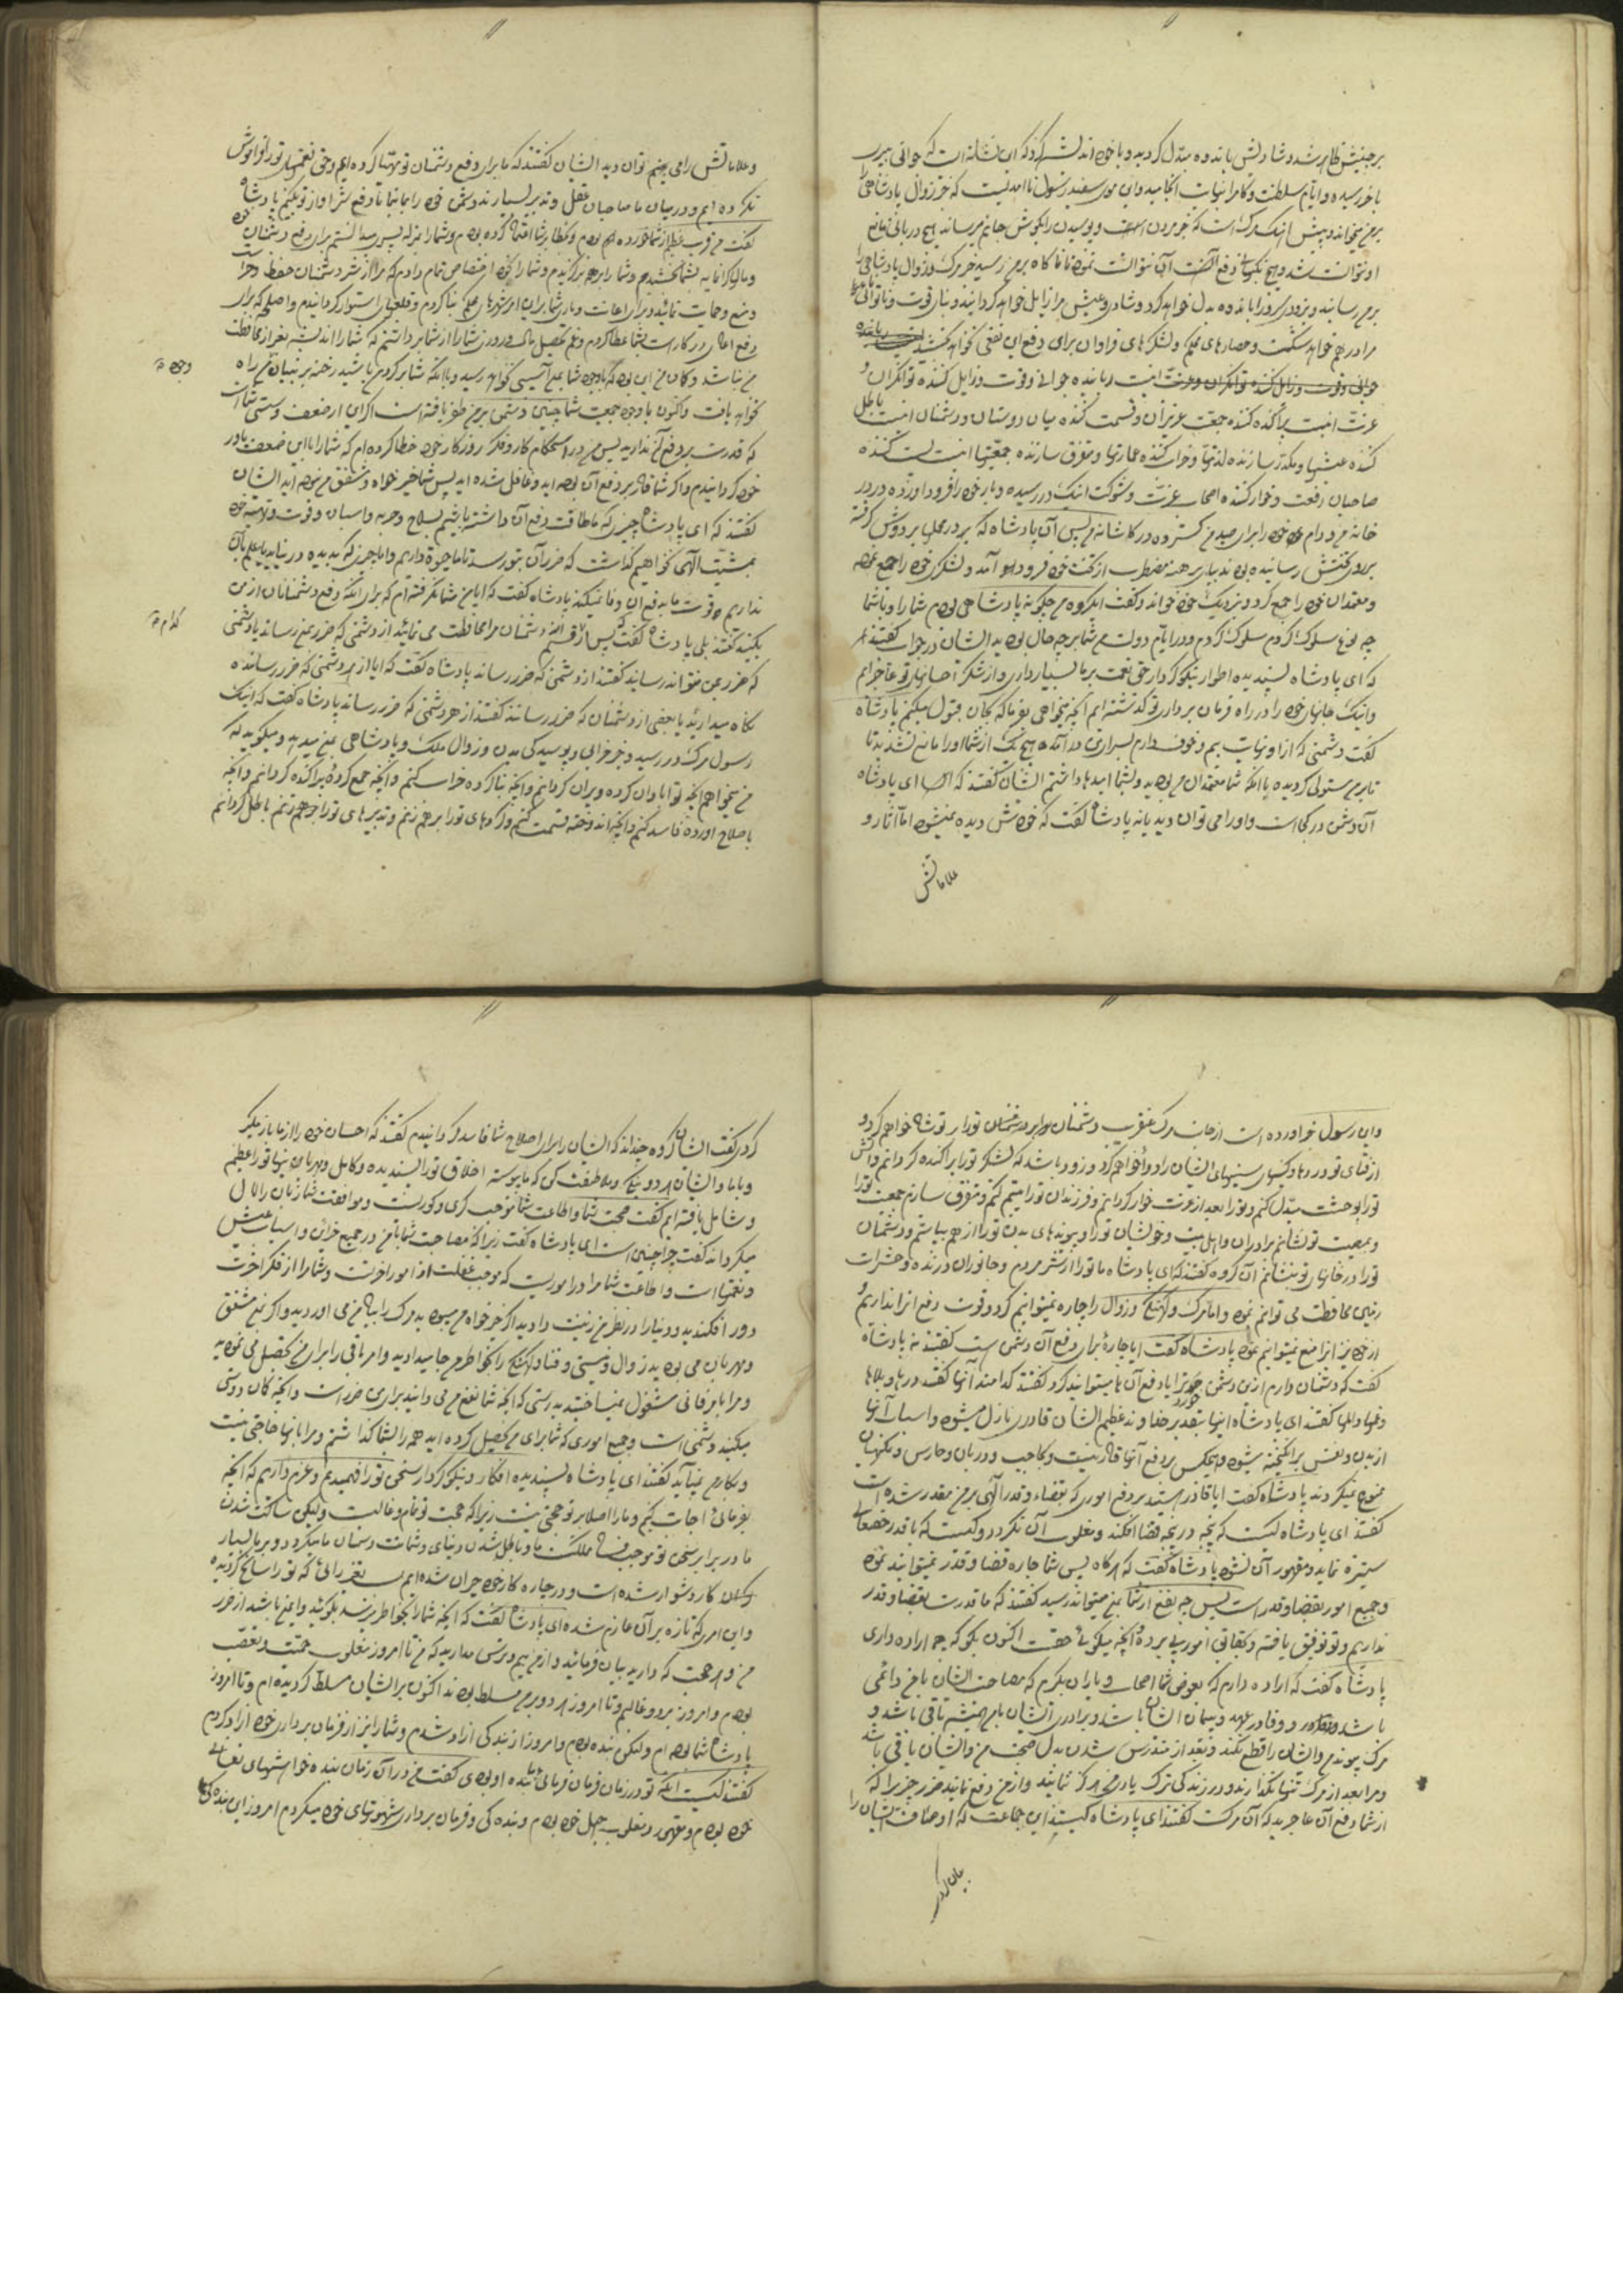 برجبینش ظاهر شد و شادیش باندوه مبدّل گردید و با خود اندیشه کرد که این نشانه است که جوانی بپیری
با خر رسیده و ایام سلطنت و کامرانی بنهایت انجامیده و این موی سفید رسول ناامیدیست که خبر زوال پادشاهی را
بر من میخواند و پیش آهنگ مرگ است که خبر مردن و پوسیدن را بگوش جانم میرساند هیچ دربانی مانع
او نتوانست شد و هیچ نگهبانی دفع آن نتوانست نمود تا ناگاه بر من رسید خبر مرگ و زوال پادشاهی را
بمن رسانید و بزودی سرور مرا باندوه بدل خواهد کرد و شادی و عیش مرا زایل خواهد گردانید و بنای قوت و توانائی
مرا در هم خواهد شکست و حصارهای محکم و لشکرهای فراوان برای دفع این نفعی نخواهد بخشید
اینست رباینده جوانی و قوت و زایل کننده توانگری و
عزت اینست پراکنده کننده جمعیت عزیزان و قسمت کننده میان دوستان و دشمنان اینست باطل
کننده عیشها و مکدر سازنده لذتها و خراب کننده عمارتها و متفرق سازنده جمعیتها اینست پست کننده
صاحبان رفعت و خوار کننده اصحاب عزت و شوکت اینک در رسیده و بار خود را فرود آورده در در
خانه من و دام خود را برای صید من گسترده در کاشانه من پس آن پادشاه که بر در محمل بر دوش گرفته
بروی تختش رسانیده بودند بپای برهنه مضطرب از تخت خود فرود آمد و لشکر خود را جمع نمود
و معتمدان خود را جمع کرد و نزدیک خود خواند و گفت ای گروه من چگونه پادشاهی بودم شما را و با شما
چه نوع سلوک کردم و در ایام دولت من شما بر چه حال بودید ایشان در جواب گفتند
که ای پادشاه پسندیده اطوار نیکو کردار حق نعمت بر ما بسیار داری و از شکر احسانهای تو عاجزیم
و اینک جانهای خود را در راه فرمان برداری تو گذاشته ایم آنچه میخواهی بفرما که بجان قبول میکنیم پادشاه
گفت دشمنی که از او نهایت بیم و خوف دارم بسرای من در آمده و هیچ یک از شما او را مانع نشدید تا
تا بر من مستولی گردید با آنکه شما معتمدان من بودید و بشما امیدها داشتم ایشان گفتند که ای پادشاه
آن دشمن در کجاست و او را می توان دید یا نه پادشاه گفت که خودش دیده نمیشود اما آثار و
علاماتش
وعلاماتش را می بینم توان دید ایشان گفتند که ما برای دفع دشمنان تو مهیا گردیده ایم و حق نعمتهای تو را فراموش
نکرده ایم و در میان ما صاحبان عقل و تدبیر بسیارند دشمن خود را بما بنما تا دفع شر او از تو بکنیم پادشاه
گفت من فریب عظیم از شما خورده ام و بخطا بر شما اعتماد کرده بودم و شما را بمنزله سپر میدانستم برای دفع دشمنان خود
و مالهای گرانمایه بشما بخشیدم و شما را بر همه برگزیدم و شما را بخود اختصاص تمام دادم که مرا از شر دشمنان حفظ و حراست
و منع و حمایت نمائید و برای اعانت و یاری شما بر این امر شهرهای محکم بنا کردم و قلعهای استوار گردانیدم و اسلحه که برای
دفع اعادی در کار است بشما عطا کردم و غم تحصیل مال و روزی شما را از شما برداشتم که شما را اندیشه بغیر از محافظت
من نباشد و گمان من این بود که با وجود شما بمن آسیبی نخواهد رسید و با آنکه شما بر گرد من باشید رخنه بر بنیان من راه
وجود
نخواهد یافت و اکنون با وجود جمعیت شما چنین دشمنی بر من ظفر یافته است اگر این از ضعف و سستی شما است
که قدرت بر دفع آن ندارید پس من در استحکام کار و فکر روزگار خود خطا کرده ام که شما را با این ضعف یاور
خود گردانیدم و اگر شما قادر بر دفع آن بوده اید و غافل شده اید پس شما خیر خواه و مشفق من نبوده اید ایشان
گفتند که ای پادشاه چیزی که ما طاقت دفع آن داشته باشیم بسلاح و حربه و اسبان و قوت و توانایی خود
بمشیت الهی نخواهیم گذاشت که ضرر آن بتو رسد تا ما حیوة داریم و اما چیزی که بدیده در نیاید ما علم بآن
نداریم و قوت ما بدفع آن وفا نمیکند پادشاه گفت که آیا من شما نگرفته ام که برای آنکه دفع دشمنان از من
بکنید گفتند بلی پادشاه گفت پس از چه قسم دشمنان مرا محافظت می نمائید از دشمنی که ضرر بمن رساند یا دشمنی
کدام
که ضرر بمن نتواند رسانید گفتند از دشمنی که ضرر رساند پادشاه گفت که آیا از هر دشمنی که ضرر رساننده
نگاه میدارید یا بعضی از دشمنان که ضرر رسانند گفتند از هر دشمنی که ضرر رساند پادشاه گفت که اینک
رسول مرگ در رسید و خبر خرابی و پوسیدگی بدن و زوال ملک و پادشاهی بمن میدهد و میگوید که
من میخواهم آنچه تو آبادان کرده ویران گردانم و آنچه بنا کرده خراب کنم و آنچه جمع کرده پراکنده گردانم و آنچه
باصلاح آورده فاسد کنم و آنچه اندوخته قسمت کنم و کردهای تو را بر هم زنم و تدبیرهای تو را باطل گردانم
و این رسول خبر آورده است از جانب مرگ که عنقریب دشمنان را بر تو شاد خواهم کرد و
از فنای تو دردها و کینهای سینهای ایشان را دوا خواهم کرد و زود باشد که لشکر تو را پراکنده گردانم و انس
تو را بوحشت مبدّل کنم و تو را بعد از عزت خوار گردانم و فرزندان تو را یتیم کنم و متفرق سازم جمعیت تو را
و بمصیبت تو نشانم برادران و اهل بیت و خویشان تو را و پیوندهای بدن تو را از هم بپاشم و دشمنان
تو را در خانهای تو بنشانم آن گروه گفتند که ای پادشاه ما تو را از شر مردم و جانوران درنده و حشرات
زمین محافظت می توانیم نمود و اما مرگ و زوال را چاره نمیتوانیم کرد و قوت دفع آنرا نداریم و
از خود نیز آنرا منع نمیتوانیم نمود پادشاه گفت آیا چارۀ برای دفع آن دشمن هست گفتند نه پادشاه
گفت که دشمنان دارم از این دشمن خوردتر آیا دفع آنها میتوانید کرد گفتند کدامند آنها گفت دردها و بلاها
و غمها و المها گفتند ای پادشاه اینها بتقدیر خداوند عظیم الشأن قادر نازل میشود و اسباب آنها
از بدن و نفس برانگیخته میشود و هیچکس بر دفع آنها قادر نیست و بحاجب و دربان و حارس و نگهبان
ممنوع نمیگردند پادشاه گفت آیا قادر هستید بر دفع اموری که بقضا و قدر الهی بر من مقدر شده است
گفتند ای پادشاه کیست که پنجه در پنجه قضا افکند و مغلوب آن نگردد و کیست که با قدر حقتعالی
ستیزه نماید و مقهور آن نشود پادشاه گفت که هرگاه پس شما چاره قضا و قدر نمیتوانید نمود
و جمیع امور بقضا و قدر است پس چه نفع از شما بمن میتواند رسید گفتند که ما قدرت بقضا و قدر
نداریم و تو توفیق یافته و بحقایق امور پی برده و آنچه میگوئی حقست اکنون بگو که چه اراده داری
پادشاه گفت که اراده دارم که بعوض شما اصحاب و یاران بگیرم که مصاحبت ایشان با من دائمی
باشد و وفا در عهد و پیمان ایشان باشد و برادری ایشان با من همیشه باقی باشد و
مرگ پیوند من و ایشان را قطع نکند و بعد از مندرس شدن بدن صحبت من و ایشان باقی باشد
و مرا بعد از مرگ تنها نگذارند و در زندگی ترک یاری من نمایند و از من دفع نمایند ضرر چیزی را که
از شما دفع آن عاجزید که آن مرگ است گفتند ای پادشاه کیستند این جماعت که اوصاف ایشان را
بیان کردی
کردی گفت ایشان گروهی چندند که ایشان را برای اصلاح شما فاسد گردانیدم گفتند که احسان خود را از ما باز مگیر
و با ما و ایشان هر دو نیکی و ملاطفت کن که ما پیوسته اخلاق تو را پسندیده و کامل و مهربانیهای تو را عظیم
و شامل یافته ایم گفت صحبت شما و اطاعت شما موجب کری و کوریست و موافقت شما زبان را لال
میگرداند گفتند چرا چنین است ای پادشاه گفت زیرا که مصاحبت شما با من در جمع خزاین و اسباب عیش
و نعمتهاست و اطاعت شما مرا در اموریست که موجب غفلت از امور آخرتست و شما مرا از فکر آخرت
دور افکندید و دنیا را در نظر من زینت دادید اگر خیر خواه من میبودید مرگ را بیاد من می آوردید و اگر بمن مشفق
و مهربان می بودید زوال و نیستی و فنا و کهنگی را بخاطر من جا میدادید و امر باقی را برای من تحصیل می نمودید
و مرا بامر فانی مشغول نمیساختید بدرستی که آنچه شما نفع من می دانید برای من ضرر است و آنچه گمان دوستی
میکنید دشمنی است و جمیع اموری که شما برای من تحصیل کرده اید همه را بشما گذاشتم و مرا بآنها حاجتی نیست
و بکارم نمیآید گفتند ای پادشاه پسندیده افکار و نیکو کردار سخن تو را فهمیدیم و عزم داریم که آنچه
بفرمائی اجابت کنیم و ما را اصلا بر تو حجتی نیست زیرا که حجت تو تمام و غالبست و لیکن ساکت شدن
ما در برابر سخن تو موجب فساد مملکت ما و باطل شدن دنیای ما و شماتت دشمنان ما میگردد و بر ما بسیار
کار دشوار شده است و در چاره کار خود حیران شده ایم بسبب تغییر رائی که تو را سانح گردیده
و این امری که تازه بر آن عازم شده ای پادشاه گفت که آنچه شما را بخاطر میرسد بگوئید و ایمن باشید از ضرر
من و هر حجت که دارید بیان فرمائید و از من بیم و ترس مدارید که من تا امروز مغلوب حمیت و تعصب
بودم و امروز بر هر دو غالبم و تا امروز هر دو بر من مسلط بودند اکنون بر ایشان مسلط گردیده ام و تا امروز
پادشاه شما بودم و لیکن بنده بودم و امروز از بندگی آزاد شدم و شما را نیز از فرمان برداری خود آزاد کردم
گفتند کیست آنکه تو در زمان فرمان فرمائی ما بنده او بودی گفت من در آن زمان بنده خواهشهای نفسانی
خود بودم و مقهور و مغلوب جهل خود بودم و بندگی و فرمان برداری شهوتهای خود میکردم امروز این بندگیها